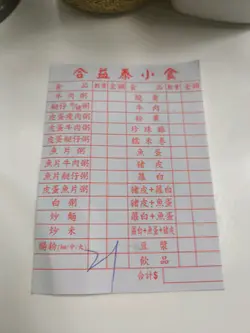 合益泰小食
食品 數量 金額 食品 數量 金額
牛肉粥 燒賣
魷仔粥 牛肉
皮蛋瘦肉粥 粉果
皮蛋牛肉粥 珍珠雞
皮蛋粥 糯米卷
魚片粥 魚蛋
魚片牛肉粥 豬皮
魚片魷仔粥 蘿白
皮蛋魚片粥 豬皮+蘿白
白粥 豬皮+魚蛋
炒麵 蘿白+魚蛋
炒米 蘿白+魚蛋+豬皮
腸粉 豆漿
飲品
合計$
21